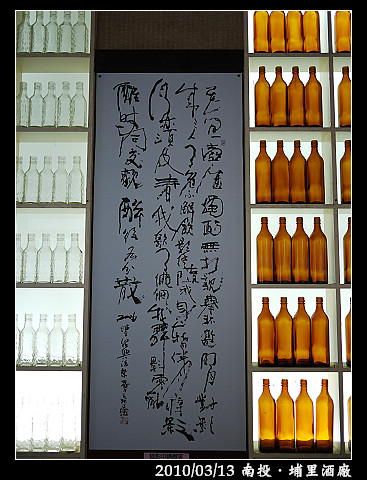 花間一壺酒獨酌無相親舉杯邀明月對影
成三人月既不解飲影徒隨我身暫伴月將影
行樂須及春我歌月徘徊我舞影零亂
醒時同交歡醉後各分散
2010/03/13 南投·埔里酒廠